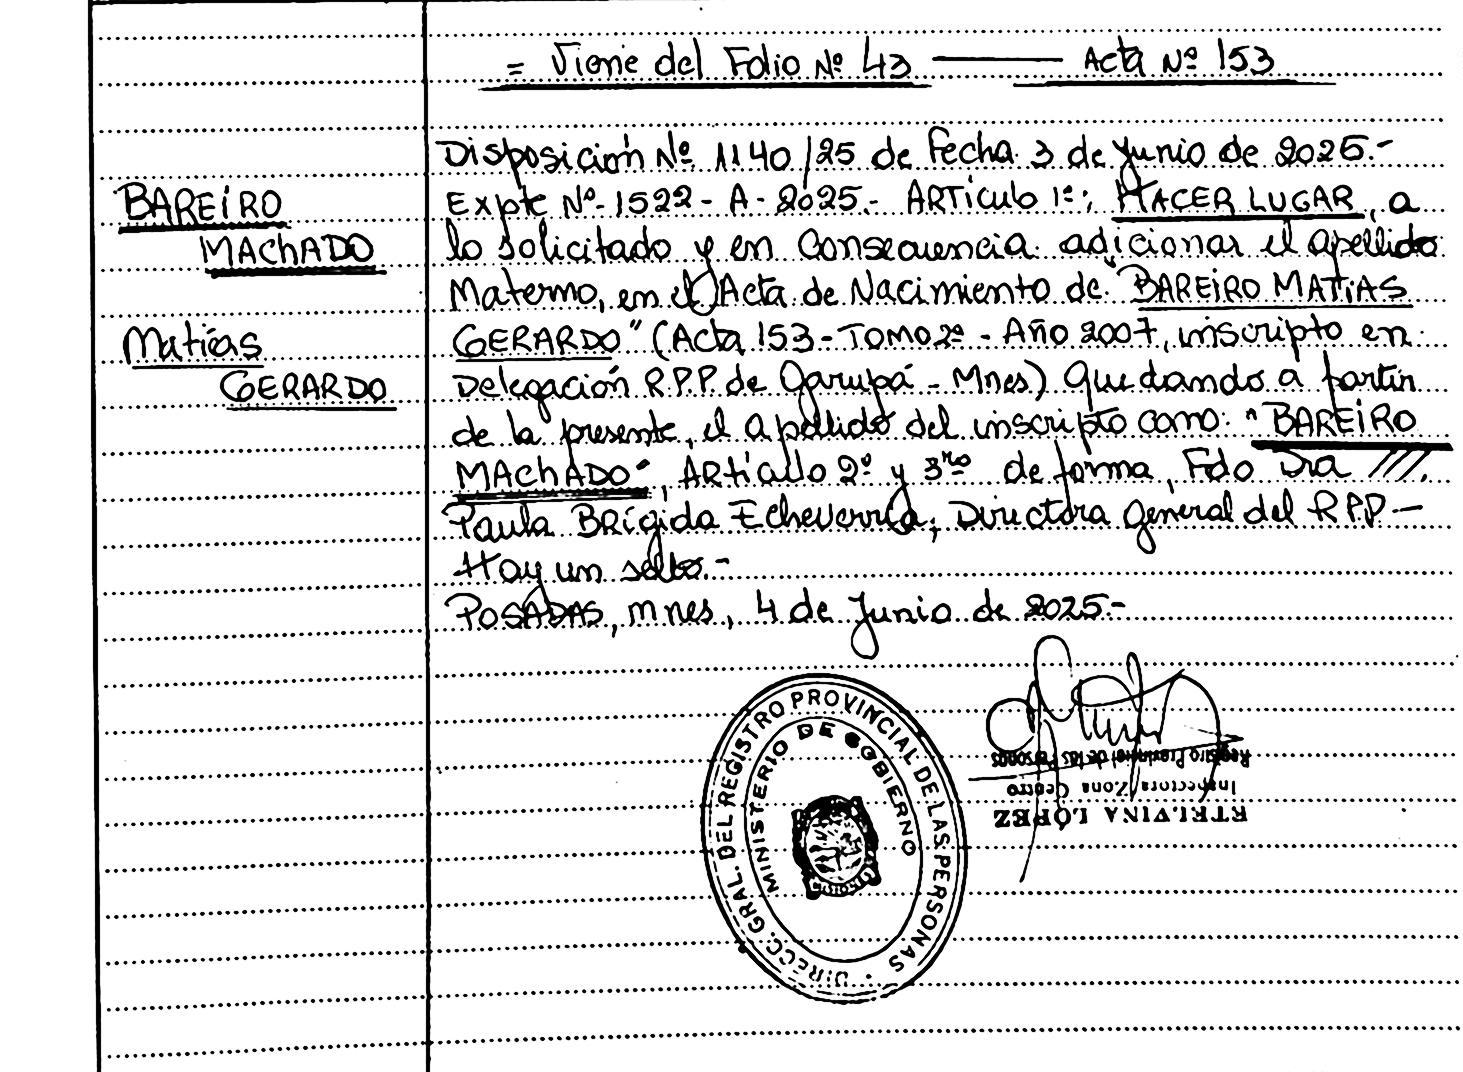 = Viene del Folio Nº 43 ——— Acta Nº 153
Disposición Nº 1140/25 de Fecha 3 de Junio de 2025.-
BAREIRO
Expte Nº-1522-A-2025.- ARTículo 1º; HACER LUGAR, a
MAChADO
lo solicitado y en Consecuencia adicionar el apellido
Materno, en el Acta de Nacimiento de "BAREIRO MATÍAS
Matías
GERARDO" (Acta 153-TOMO 2º - Año 2007, inscripto en
GERARDO
Delegación R.P.P. de Garupá - Mnes) Quedando a partir
de la presente, el apellido del inscripto como: "BAREIRO
MAChADO", ARtículo 2º y 3ro de forma, Fdo Dra ///.
Paula BRígida Echeverría, Directora General del RPP —
Hay un sello.-
POSADAS, mnes, 4 de Junio de 2025.-
DIRECC. GRAL. DEL REGISTRO PROVINCIAL DE LAS PERSONAS
MINISTERIO DE GOBIERNO
ETELVINA LOPEZ
Inspectora Zona Centro
Registro Provincial de las Personas